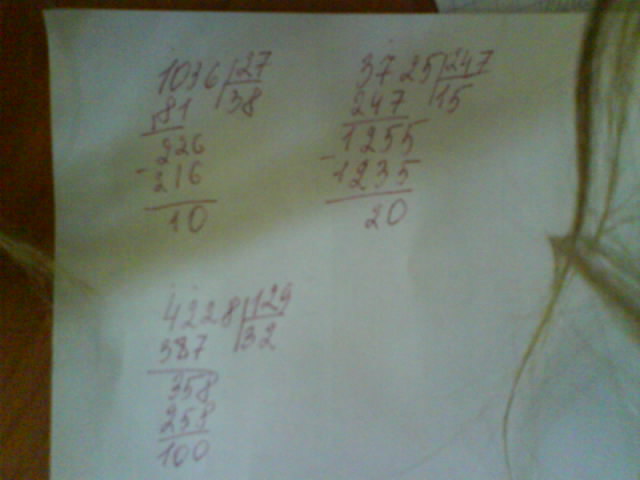 1036 27
81 38
226
- 216
10
3725 247
247 15
1255
- 1235
20
4228 129
387 32
358
258
100